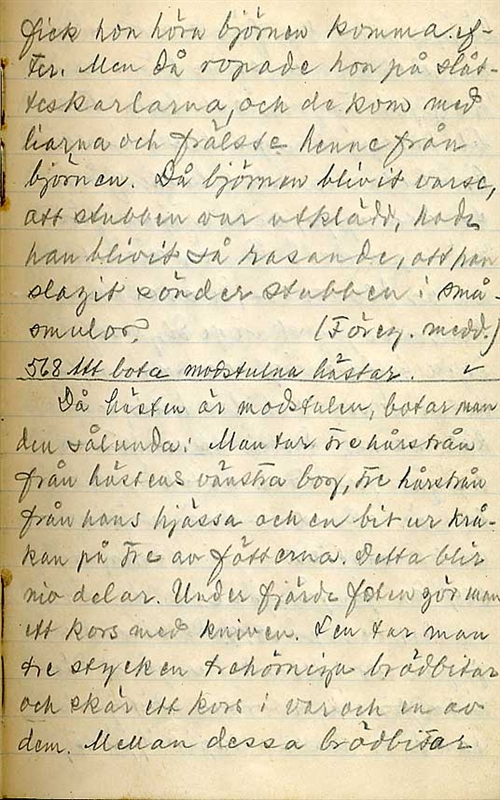 fick hon höra björnen komma ef-
ter. Men då ropade hon på slåt-
teskarlarna, och de kom med
liarna och frälste henne från
björnen. Då björnen blivit varse,
att stubben var utklädd, hade
han blivit så rasande, att han
slagit sönder stubben i små-
smulor. (Föreg. medd.)
568 Att bota modstulna hästar. ✓
Då hästen är modstulen, botar man
den sålunda: Man tar tre hårstrån
från hästens vänstra bog, tre hårstrån
från hans hjässa och en bit ur krå-
kan på tre av fötterna. Detta blir
nio delar. Under fjärde foten gör man
ett kors med kniven. Sen tar man
tre stycken trehörniga brödbitar
och skär ett kors i var och en av
dem. Mellan dessa brödbitar